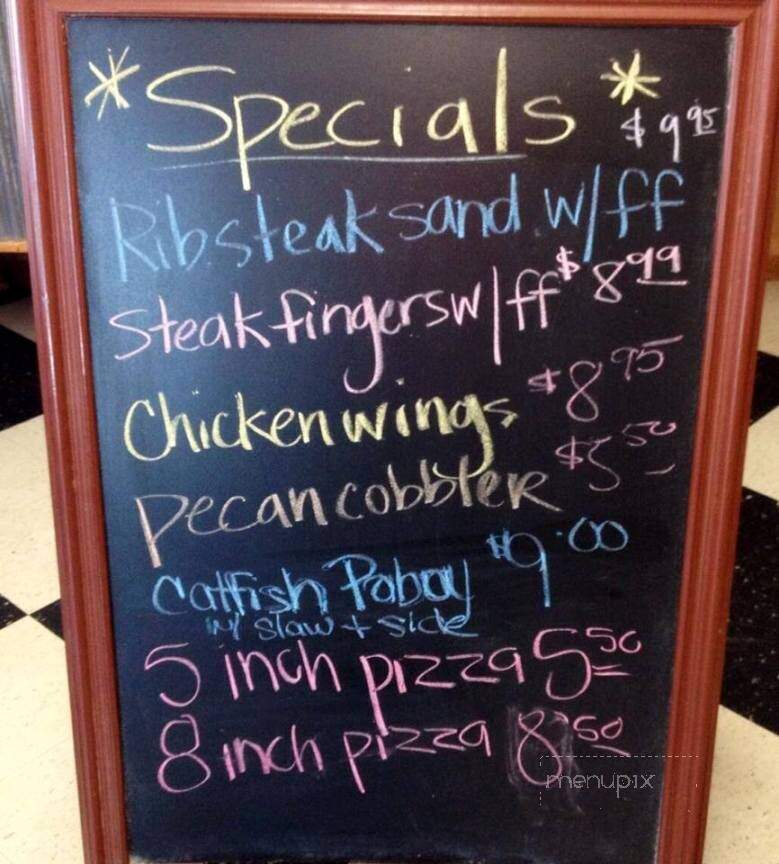 *Specials*
$9.95
Ribsteak sand w/ff
Steak fingers w/ff $8.99
Chicken wings $8.95
pecan cobbler $5.50
Catfish Poboy $9.00
w/ slaw + side
5 inch pizza 5.50
8 inch pizza 8.50
menupix